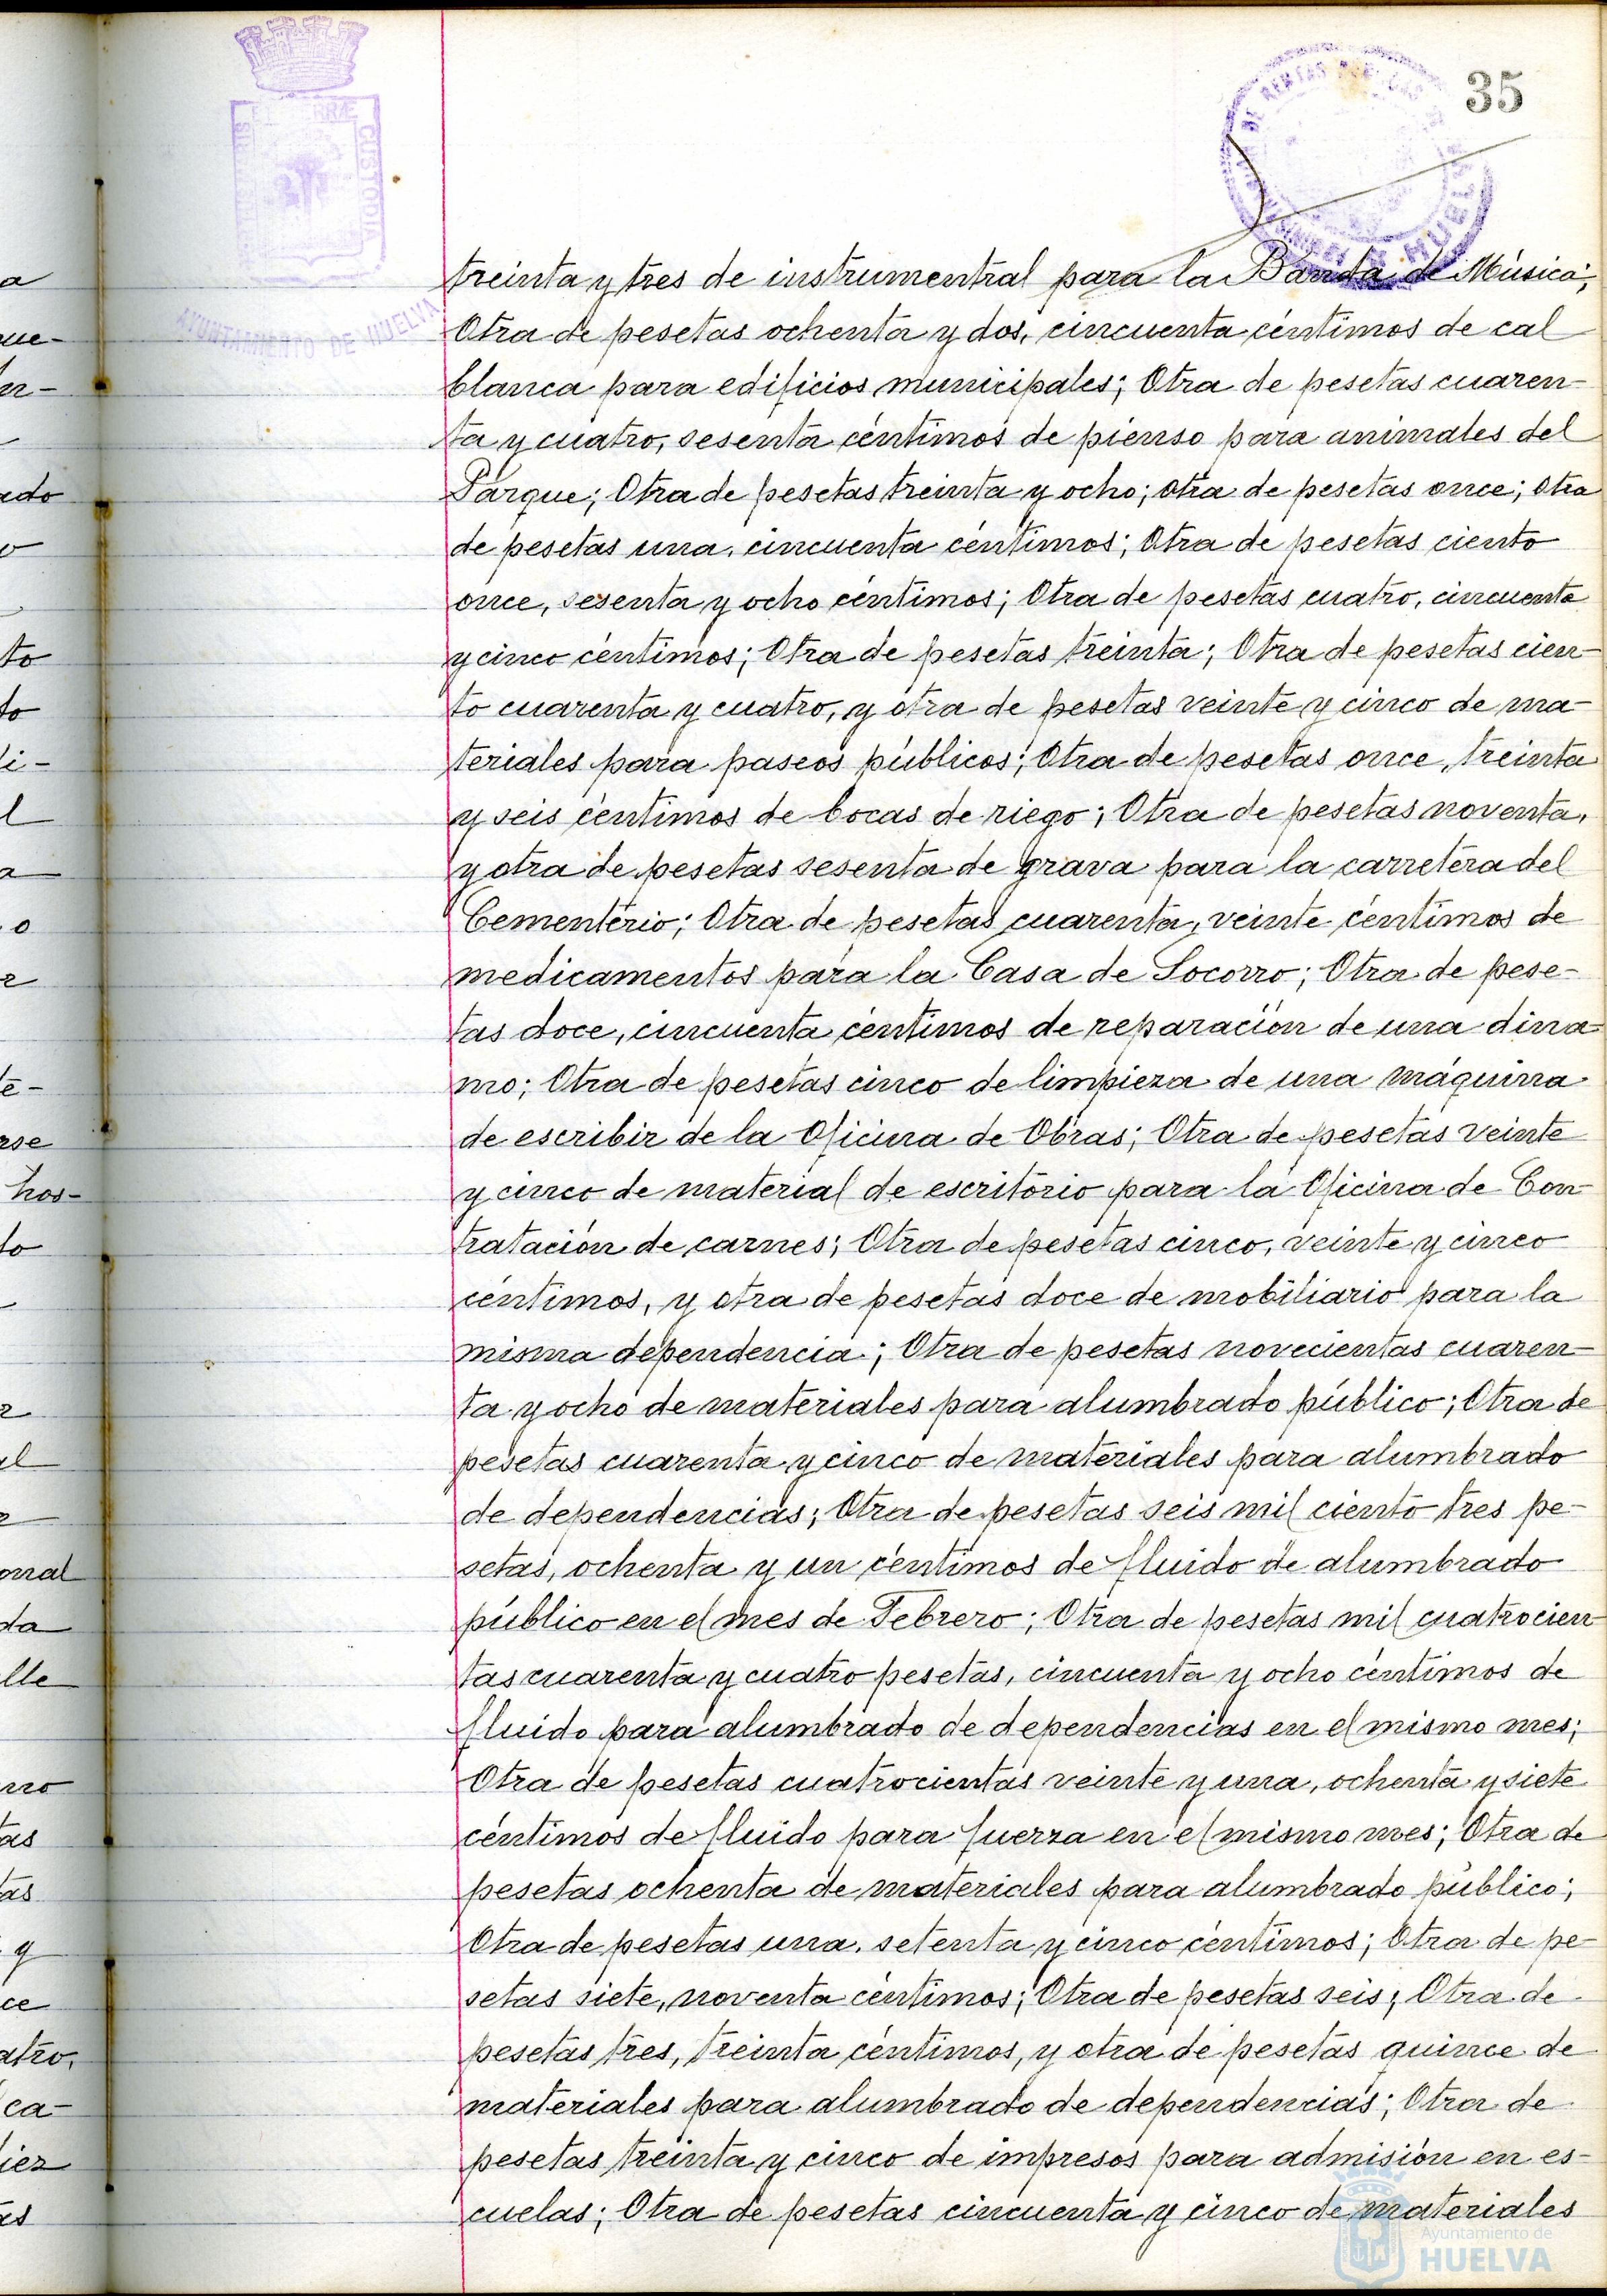 35
AYUNTAMIENTO DE HUELVA
treinta y tres de instrumentral para la Banda de Música;
Otra de pesetas ochenta y dos, cincuenta céntimos de cal
blanca para edificios municipales; Otra de pesetas cuaren-
ta y cuatro, sesenta céntimos de pienso para animales del
Parque; Otra de pesetas treinta y ocho; otra de pesetas once; otra
de pesetas una, cincuenta céntimos; Otra de pesetas ciento
once, sesenta y ocho céntimos; Otra de pesetas cuatro, cincuenta
y cinco céntimos; Otra de pesetas treinta; Otra de pesetas cien-
to cuarenta y cuatro, y otra de pesetas veinte y cinco de ma-
teriales para paseos públicos; Otra de pesetas once, treinta
y seis céntimos de bocas de riego; Otra de pesetas noventa,
y otra de pesetas sesenta de grava para la carretera del
Cementerio; Otra de pesetas cuarenta, veinte céntimos de
medicamentos para la Casa de Socorro; Otra de pese-
tas doce, cincuenta céntimos de reparación de una dina
mo; Otra de pesetas cinco de limpieza de una máquina
de escribir de la Oficina de Obras; Otra de pesetas veinte
y cinco de material de escritorio para la Oficina de Con-
tratación de carnes; Otra de pesetas cinco, veinte y cinco
céntimos, y otra de pesetas doce de mobiliario para la
misma dependencia; Otra de pesetas novecientas cuaren-
ta y ocho de materiales para alumbrado público; Otra de
pesetas cuarenta y cinco de materiales para alumbrado
de dependencias; Otra de pesetas seis mil ciento tres pe-
setas, ochenta y un céntimos de fluido de alumbrado
público en el mes de Febrero; Otra de pesetas mil cuatrocien-
tas cuarenta y cuatro pesetas, cincuenta y ocho céntimos de
fluido para alumbrado de dependencias en el mismo mes;
Otra de pesetas cuatrocientas veinte y una, ochenta y siete
céntimos de fluido para fuerza en el mismo mes; Otra de
pesetas ochenta de materiales para alumbrado público;
Otra de pesetas una, setenta y cinco céntimos; Otra de pe-
setas siete, noventa céntimos; Otra de pesetas seis; Otra de
pesetas tres, treinta céntimos, y otra de pesetas quince de
materiales para alumbrado de dependencias; Otra de
pesetas treinta y cinco de impresos para admisión en es-
cuelas; Otra de pesetas cincuenta y cinco de materiales
Ayuntamiento de
HUELVA